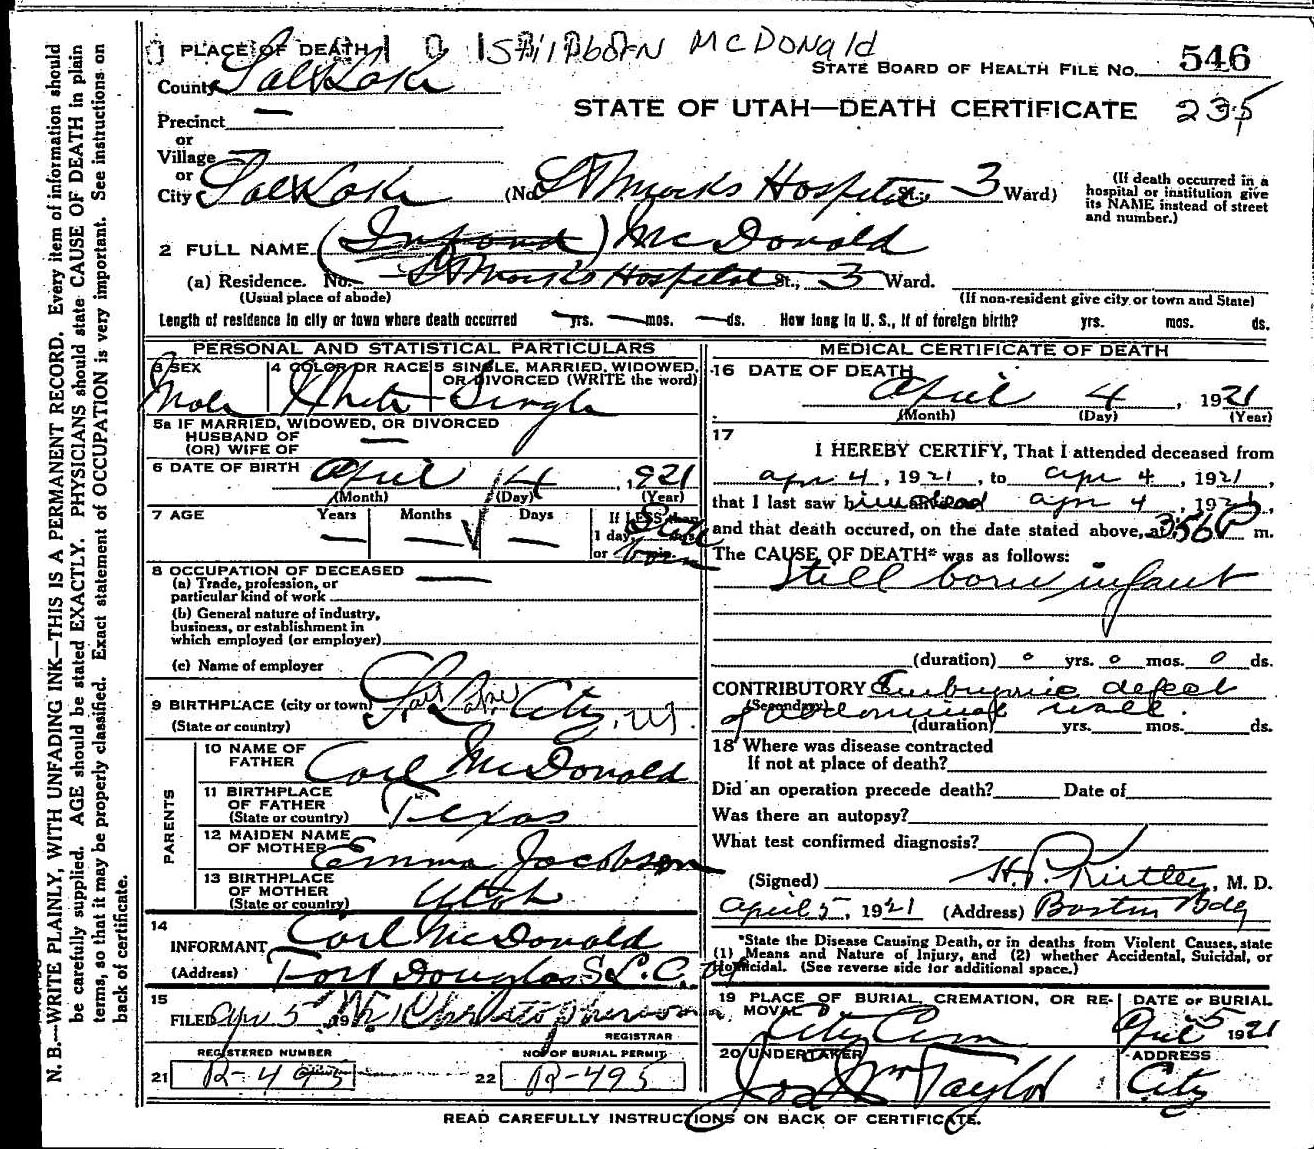 1 PLACE OF DEATH Stillborn McDonald
STATE BOARD OF HEALTH FILE NO. 546
County Salt Lake
STATE OF UTAH—DEATH CERTIFICATE 235
Precinct
or
Village
or
City Salt Lake (No. St Marks Hospital St., 3 Ward)
(If death occurred in a hospital or institution give its NAME instead of street and number.)
2 FULL NAME (Infant) McDonald
(a) Residence. No. St Mark's Hospital St., 3 Ward.
(Usual place of abode)
(If non-resident give city or town and State)
Length of residence in city or town where death occurred — yrs. — mos. — ds. How long in U. S., if of foreign birth? yrs. mos. ds.
PERSONAL AND STATISTICAL PARTICULARS
3 SEX
Male
4 COLOR OR RACE
White
5 SINGLE, MARRIED, WIDOWED, OR DIVORCED (WRITE the word)
Single
5a IF MARRIED, WIDOWED, OR DIVORCED
HUSBAND OF
(OR) WIFE OF —
6 DATE OF BIRTH April 4, 1921
(Month) (Day) (Year)
7 AGE Years Months Days If LESS than
1 day, hrs.
or min.
— — — Still born
8 OCCUPATION OF DECEASED —
(a) Trade, profession, or
particular kind of work
(b) General nature of industry,
business, or establishment in
which employed (or employer)
(c) Name of employer
9 BIRTHPLACE (city or town) Salt Lake City, Ut
(State or country)
PARENTS
10 NAME OF FATHER Carl McDonald
11 BIRTHPLACE OF FATHER (State or country) Texas
12 MAIDEN NAME OF MOTHER Emma Jacobson
13 BIRTHPLACE OF MOTHER (State or country) Utah
14
INFORMANT Carl McDonald
(Address) Fort Douglas S.L.C.
15
FILED Apr 5 19
REGISTRAR
REGISTERED NUMBER
21 R-495
NO. OF BURIAL PERMIT
22 R-495
MEDICAL CERTIFICATE OF DEATH
16 DATE OF DEATH
April 4, 1921
(Month) (Day) (Year)
17
I HEREBY CERTIFY, That I attended deceased from
apr 4, 1921, to apr 4, 1921,
that I last saw him dead apr 4, 1921,
and that death occured, on the date stated above, at 356 P m.
The CAUSE OF DEATH* was as follows:
Still born infant
(duration) 0 yrs. 0 mos. 0 ds.
CONTRIBUTORY Embryonic defect
(Secondary)
of abdominal wall.
(duration) yrs. mos. ds.
18 Where was disease contracted
If not at place of death?
Did an operation precede death? Date of
Was there an autopsy?
What test confirmed diagnosis?
(Signed) H.P. Kirtley, M. D.
April 5, 1921 (Address) Boston Bldg
*State the Disease Causing Death, or in deaths from Violent Causes, state
(1) Means and Nature of Injury, and (2) whether Accidental, Suicidal, or
Homicidal. (See reverse side for additional space.)
19 PLACE OF BURIAL, CREMATION, OR RE-
MOVAL
City Cem
DATE OF BURIAL
Apr 5 1921
20 UNDERTAKER
Jos Wm Taylor
ADDRESS
City
READ CAREFULLY INSTRUCTIONS ON BACK OF CERTIFICATE.
N. B.—WRITE PLAINLY, WITH UNFADING INK—THIS IS A PERMANENT RECORD. Every item of information should
be carefully supplied. AGE should be stated EXACTLY. PHYSICIANS should state CAUSE OF DEATH in plain
terms, so that it may be properly classified. Exact statement of OCCUPATION is very important. See instructions on
back of certificate.